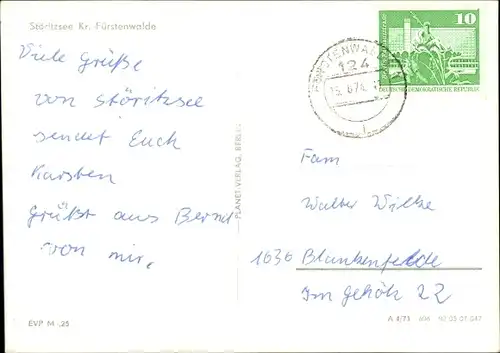 Störitzsee Kr. Fürstenwalde
Viele Grüße
von Störitzsee
sendet Euch
Karsten
grüßt aus Bernd
von mir.
EVP M -,25
PLANET-VERLAG, BERLIN
FÜRSTENWALDE
124
10
DEUTSCHE DEMOKRATISCHE REPUBLIK
Fam
Walter Wilke
1636 Blankenfelde
Im Gehölz 22
A 4/73 606 92 05 01 047